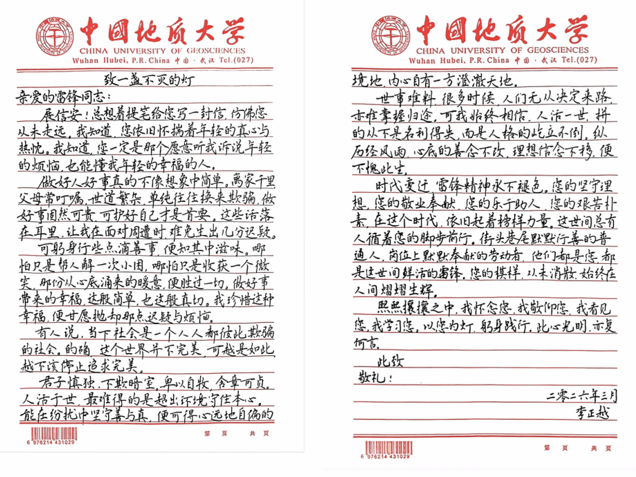 中国地质大学
CHINA UNIVERSITY OF GEOSCIENCES
Wuhan Hubei, P.R. China 中国·武汉 Tel.(027)
致一盏不灭的灯
亲爱的雷锋同志:
展信安!总想着提笔给您写一封信,仿佛您
从未走远。我知道,您依旧怀揣着年轻的真心与
热忱。我知道,您一定是那个愿意听我诉说年轻
的烦恼,也能懂我年轻的幸福的人。
做好人好事真的不像想象中简单,离家千里
父母常叮嘱,世道繁杂,单纯往往换来欺骗,做
好事固然可贵,可护好自己才是首要。这些话落
在耳里,让我在面对周遭时难免生出几分迟疑。
可躬身行些点滴善事,便知其中滋味。哪
怕只是帮人解一次小困,哪怕只是收获一个微
笑,那份从心底涌来的暖意,便胜过一切。做好事
带来的幸福,这般简单,也这般真切。我珍惜这种
幸福,便甘愿抛却那点迟疑与烦恼。
有人说,当下社会是一个人人都彼此欺骗
的社会。的确,这个世界并不完美,可越是如此
越不该停止追求完美。
君子慎独,不欺暗室,卑以自牧,含章可贞。
人活于世,最难得的是超出环境守住本心。
能在纷扰中坚守善与真,便可得心远地自偏的
第 页 共 页
6 976214 431029
中国地质大学
CHINA UNIVERSITY OF GEOSCIENCES
Wuhan Hubei, P.R. China 中国·武汉 Tel.(027)
境地,内心自有一方澄澈天地。
世事难料,很多时候,人们无从决定来路,
亦难掌握归途,可我始终相信,人活一世,拼
的从不是名利得失,而是人格的屹立不倒。纵
历经风雨,心底的善念不改,理想信念不移,便
不愧此生。
时代变迁,雷锋精神永不褪色。您的坚守理
想,您的敬业奉献,您的乐于助人,您的艰苦朴
素,在这个时代,依旧起着榜样力量。这世间总有
人循着您的脚步前行。街头巷尾默默行善的普
通人,岗位上默默奉献的劳动者,他们都是您,都
是这世间鲜活的雷锋。您的模样,从未消散,始终在
人间熠熠生辉。
熙熙攘攘之中,我怀念您,我敬仰您,我看见
您,我学习您。以您为灯,躬身践行,此心光明,亦复
何言。
此致
敬礼!
二零二六年三月
李正越
第 页 共 页
6 976214 431029